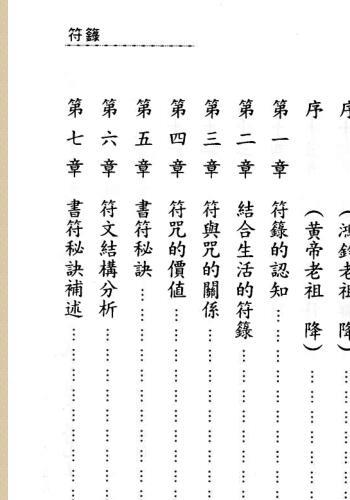 符籙
序 (鴻鈞老祖 降)………………
序 (黄帝老祖 降)………………
第一章 符籙的認知………………
第二章 結合生活的符籙………………
第三章 符與咒的關係………………
第四章 符咒的價值………………
第五章 書符秘訣………………
第六章 符文結構分析………………
第七章 書符秘訣補述………………